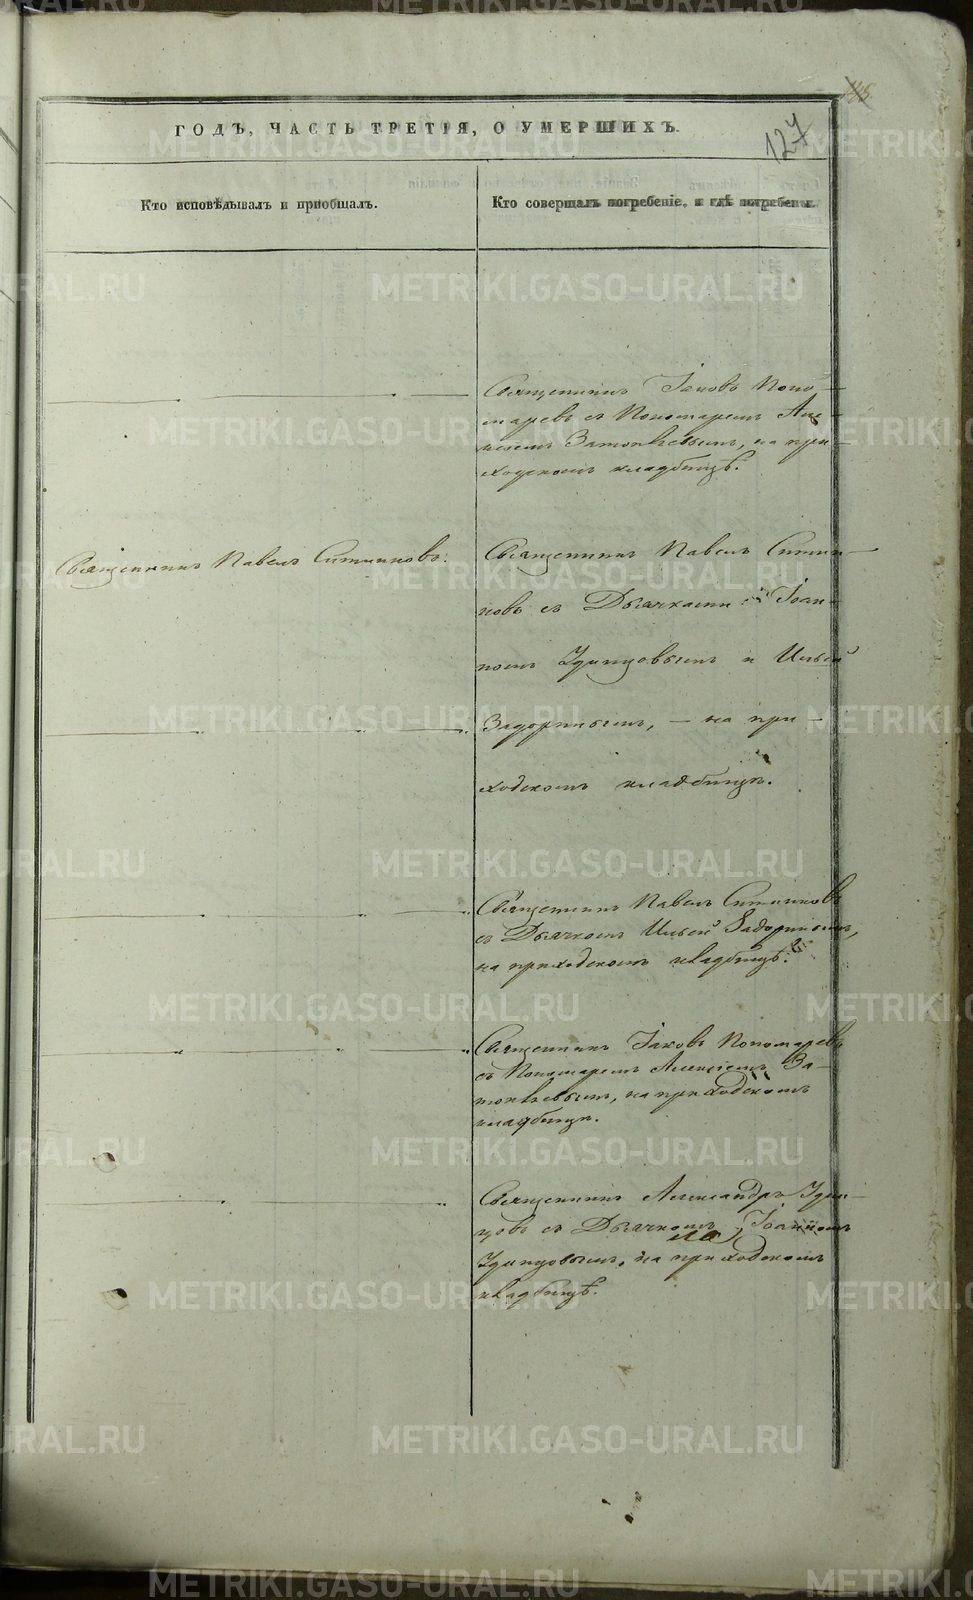 127
ГОДЪ, ЧАСТЬ ТРЕТІЯ, О УМЕРШИХЪ.
Кто исповѣдывалъ и пріобщалъ.
Кто совершалъ погребеніе, и гдѣ погребены.
Священникъ Іаковъ Поно-
маревъ съ Пономаремъ Але-
на при-
ходскомъ кладбищѣ.
Священникъ Павелъ Ситниковъ.
Священникъ Павелъ Ситни-
ковъ съ Дьячками: Іоан-
номъ Удинцовымъ и Ильей
Задоринымъ, — на при-
ходскомъ кладбищѣ.
Священникъ Павелъ Ситниковъ
съ Дьячкомъ Ильей Задоринымъ,
на приходскомъ кладбищѣ.
Священникъ Іаковъ Пономаревъ
съ Пономаремъ Алексіемъ За-
на приходскомъ
кладбищѣ.
Священникъ Александръ Удин-
цовъ съ Дьячкомъ Іоанномъ
Удинцовымъ, на приходскомъ
кладбищѣ.
METRIKI.GASO-URAL.RU